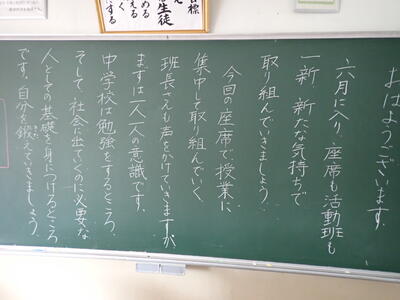 目標
める
える
生徒
く
する
おはようございます。
六月に入り、座席も活動班も
一新。新たな気持ちで
取り組んでいきましょう。
今回の座席で、授業に
集中して取り組んでいく
まずは一人一人の意識です。
中学校は勉強をするところ。
そして、社会に出ていくのに必要な
人としての基礎を身につけるところ
です。自分を鍛えていきましょう。